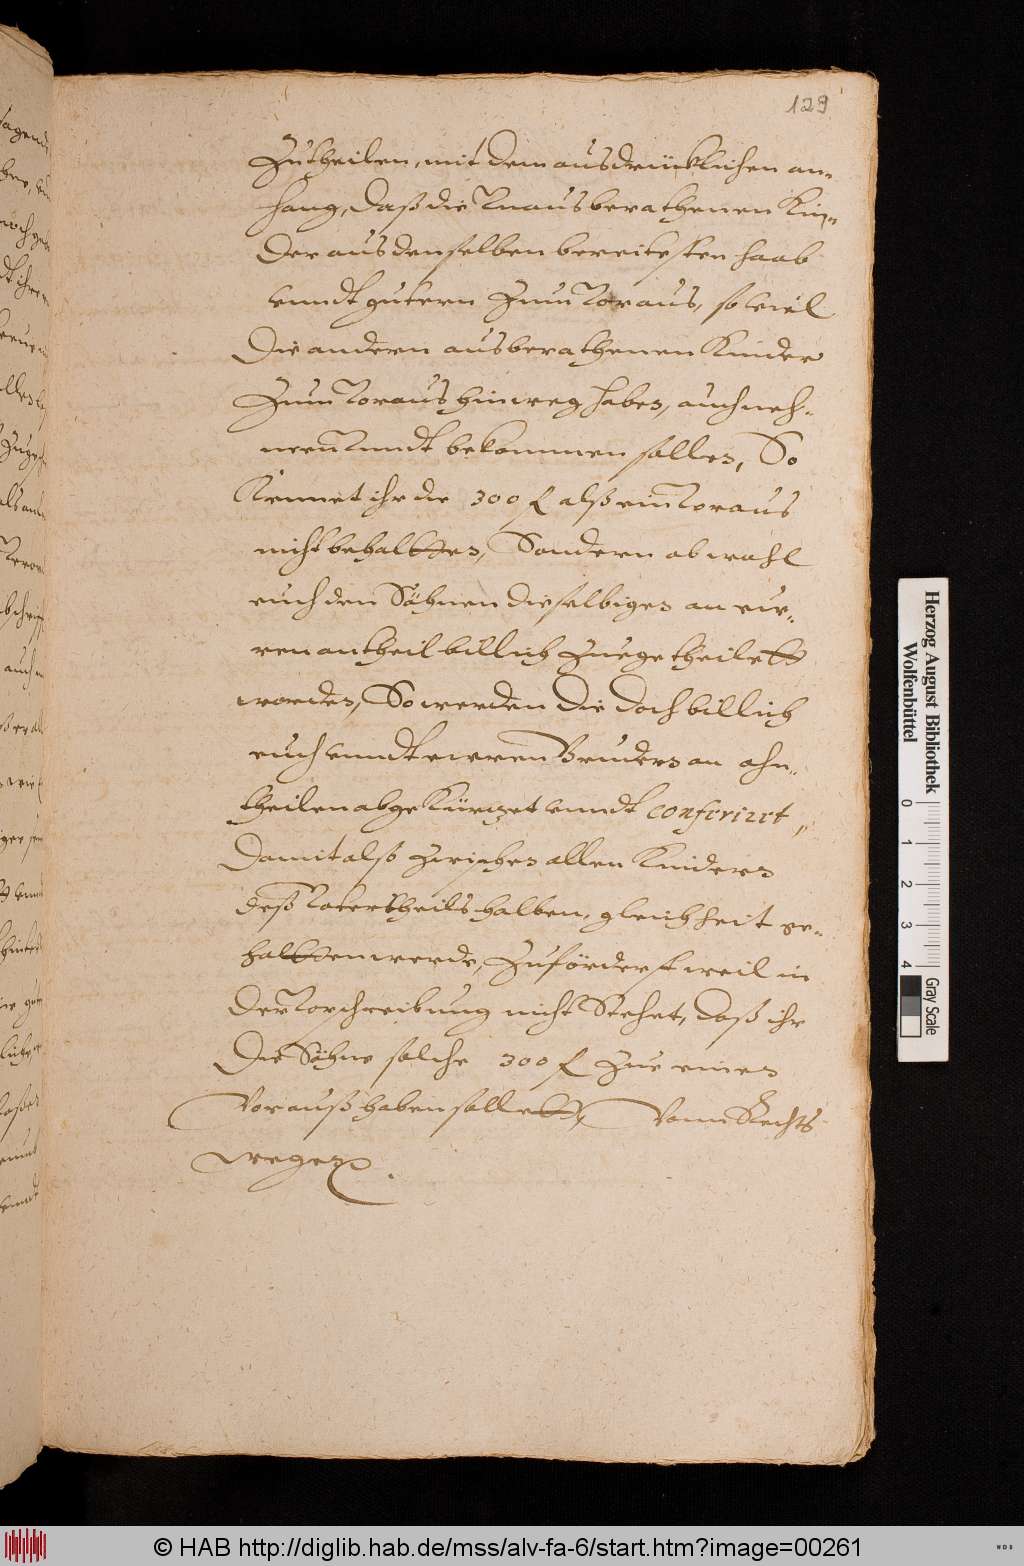 129
Zutheilen, mit dem ausdrücklichen an-
hang, daß die Vnausberathenen Kin-
der aus denselben bereitesten haab
vnndt gutern Zum Voraus, so viel
die andern ausberathenen Kinder
Zum Voraus hinweg haben, auch neh-
men Vnndt bekommen sollen, So
Kennet ihr die 300 f alß ein Voraus
nicht behaltten, Sondern ob wohl
euch den Söhnen dieselbigen an eu-
ren antheil billich Zuegetheilett
worden, So werden die doch billich
euch vnndt ewren Bruders an ahn-
theilen abgeKürtzet vnndt conferiret,
damit alß Zwischen allen Kindern
deß Vatertheils halben, gleichheit er-
haltten werde, Zuförderst weil in
der Vorschreibung nicht Stehet, daß ihr
die Söhne solche 300 f Zue einen
Vorauß haben sollett, Vonn Rechts
wegen.
Herzog August Bibliothek
Wolfenbüttel
0 1 2 3 4
Gray Scale
© HAB http://diglib.hab.de/mss/alv-fa-6/start.htm?image=00261